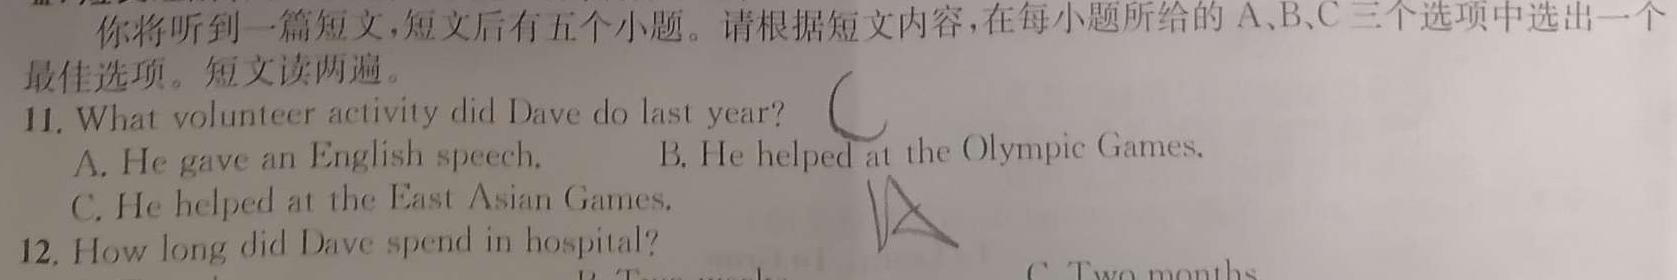 你将听到一篇短文,短文后有五个小题。请根据短文内容,在每小题所给的 A、B、C 三个选项中选出一个
最佳选项。短文读两遍。
11. What volunteer activity did Dave do last year? C
A. He gave an English speech. B. He helped at the Olympic Games.
C. He helped at the East Asian Games.
12. How long did Dave spend in hospital? A
C. Two months